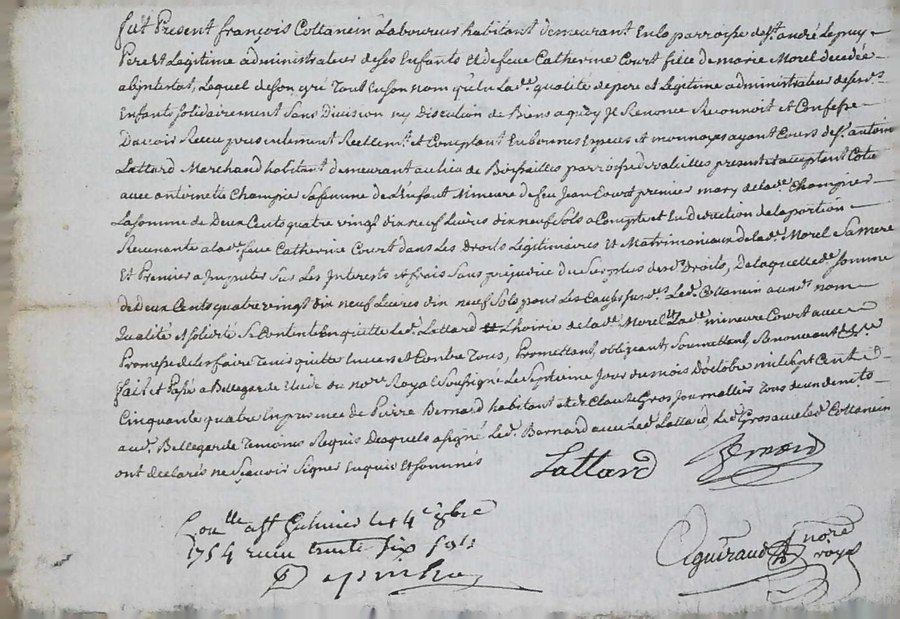 fut Present françois Collanein Laboureur habitant demeurant En la parroisse de st. andré Lepuy
Pere et Legitime administrateur de ses Enfants Et de feue Catherine Court fille de marie Morel decedée
abjntestat, Lequel de son gré Tout en son nom qu'en La de. qualité de pere et Legitime administrateur de ses ds.
Enfants solidairement Sans Division ny Discution de Biens a quoy Jl Renonce Reconnoit et Confesse
Davoir Receu presentement Reellemt. et Comptant En bonnes Especes et monnoyes ayant Cours de sr. antoine
Lattard Marchand habitant demeurant au lieu de parroisse present et acceptant Cotu
avec antoinette Champier Sa femme de L'Enfant Mineure de feu Jean Court premier mary de lade. Champier
La somme de Deux Cents quatre vingt dix neuf Livres dix neuf sols a Compte et En deduction de la portion
Revenante a lade. feue Catherine Court dans Les Droits Légitimaires Et Matrimoniaux de lade. Morel Sa mere
Et Premier a Jmputer Sur Les Interests et frais Sans prejudice du Surplus desds. Droits, De laquelle de. somme
de Deux Cents quatre vingt dix neuf Livres dix neuf Sols pour Les Causes susds. Led. Collanein auxds. nom
Qualité et solidité Se Contente En quitte Led. Lattard Lhoirie de lade. Morel Lade. mineure Court avec
Promesse de les faire Tenir quitte Envers et Contre Tous, Promettant, obligeant, soumettant, Renonceant
fait et Passé a Bellegarde Etude du nore. Royal Soussigné Le Septieme Jour du mois D'octobre mil sept Cent
Cinquante quatre En presence de Pierre Bernard habitant et de Claude Gros Journallier Tous deux
aud. Bellegarde Temoins Requis Desquels a signé Led. Bernard avec Led. Lattard, Led. Gros avec led. Collanein
ont declarés ne sçavoir Signer Enquis Et sommés
Lattard
Bernard
le 14e. 8bre
1754 receu trente six sols
Aguiraud nore
royal